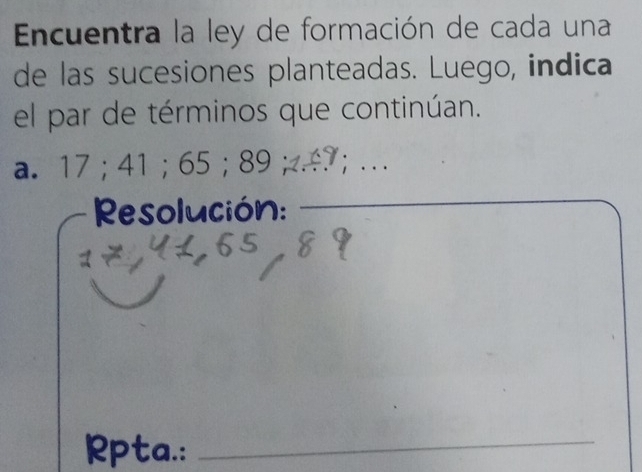 Encuentra la ley de formación de cada una
de las sucesiones planteadas. Luego, indica
el par de términos que continúan.
a. 17 ; 41 ; 65 ; 89 ; ... ; ...
Resolución:
17, 41, 65, 89
Rpta.: